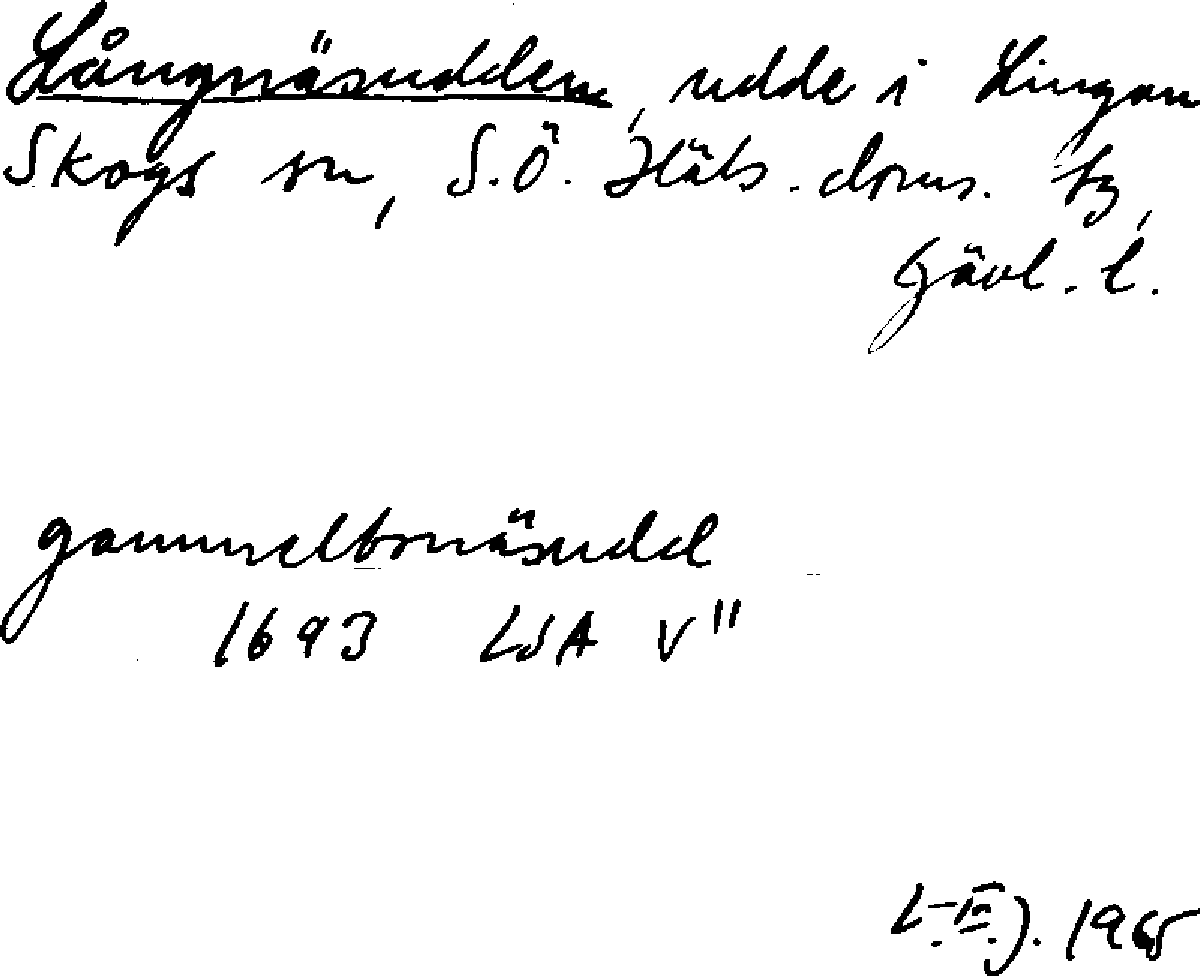 Långnäsudden, udde i Lingan
Skogs sn, S.Ö. Häls. doms. tg,
Gävl. l.
gammelbonäsudd
1693 LSA V"
L-E.J. 1965